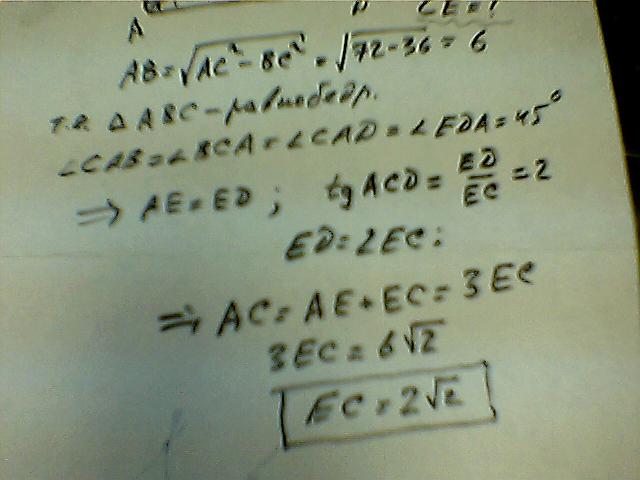 A CE = ?
AB = √AC² - BC² = √72-36 = 6
т.е. Δ ABC - равнобедр.
∠CAB = ∠BCA = ∠CAD = ∠EDA = 45°
⇒ AE = ED ; tg ACD = ED/EC = 2
ED = 2EC ;
⇒ AC = AE + EC = 3EC
3EC = 6√2
EC = 2√2